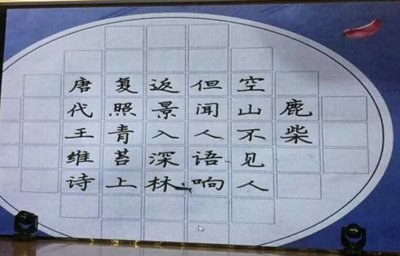 鹿柴
空山不见人
但闻人语响
返景入深林
复照青苔上
唐代王维诗